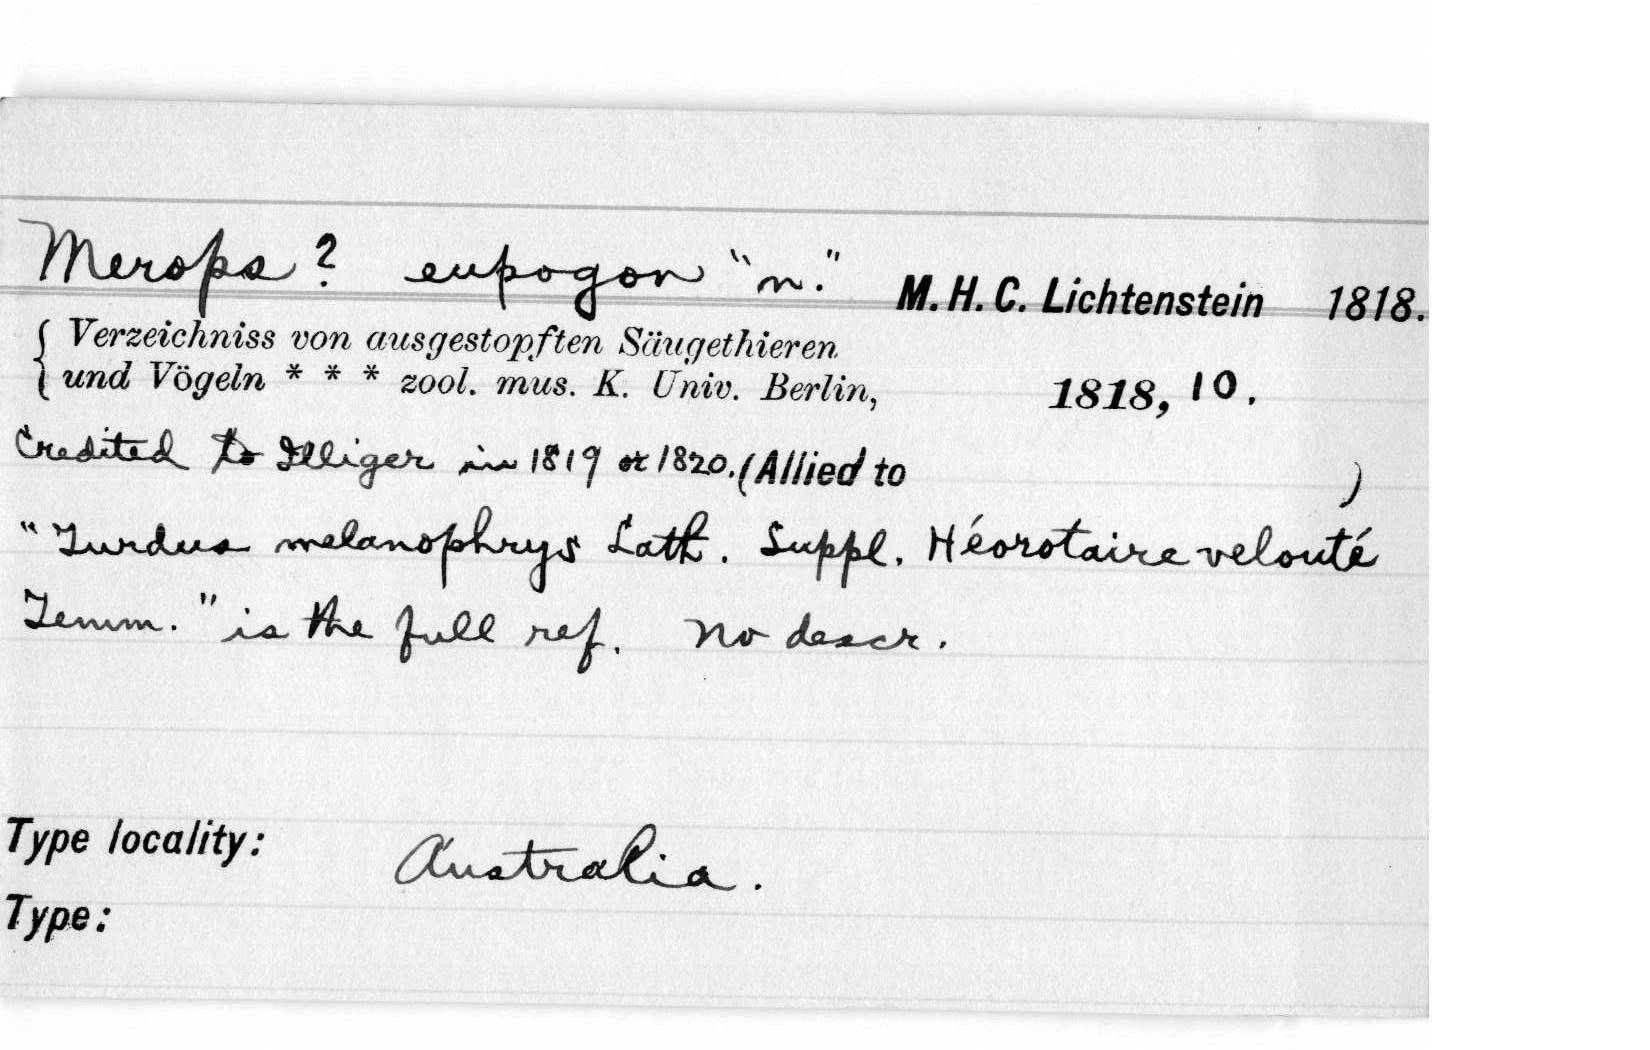 Merops ? eupogon "n." M. H. C. Lichtenstein 1818.
{ Verzeichniss von ausgestopften Säugethieren
und Vögeln * * * zool. mus. K. Univ. Berlin, 1818, 10.
Credited to Illiger in 1819 or 1820. (Allied to )
"Turdus melanophrys Lath. Suppl. Héorotaire velouté
Temm." is the full ref. No descr.
Type locality: Australia.
Type: